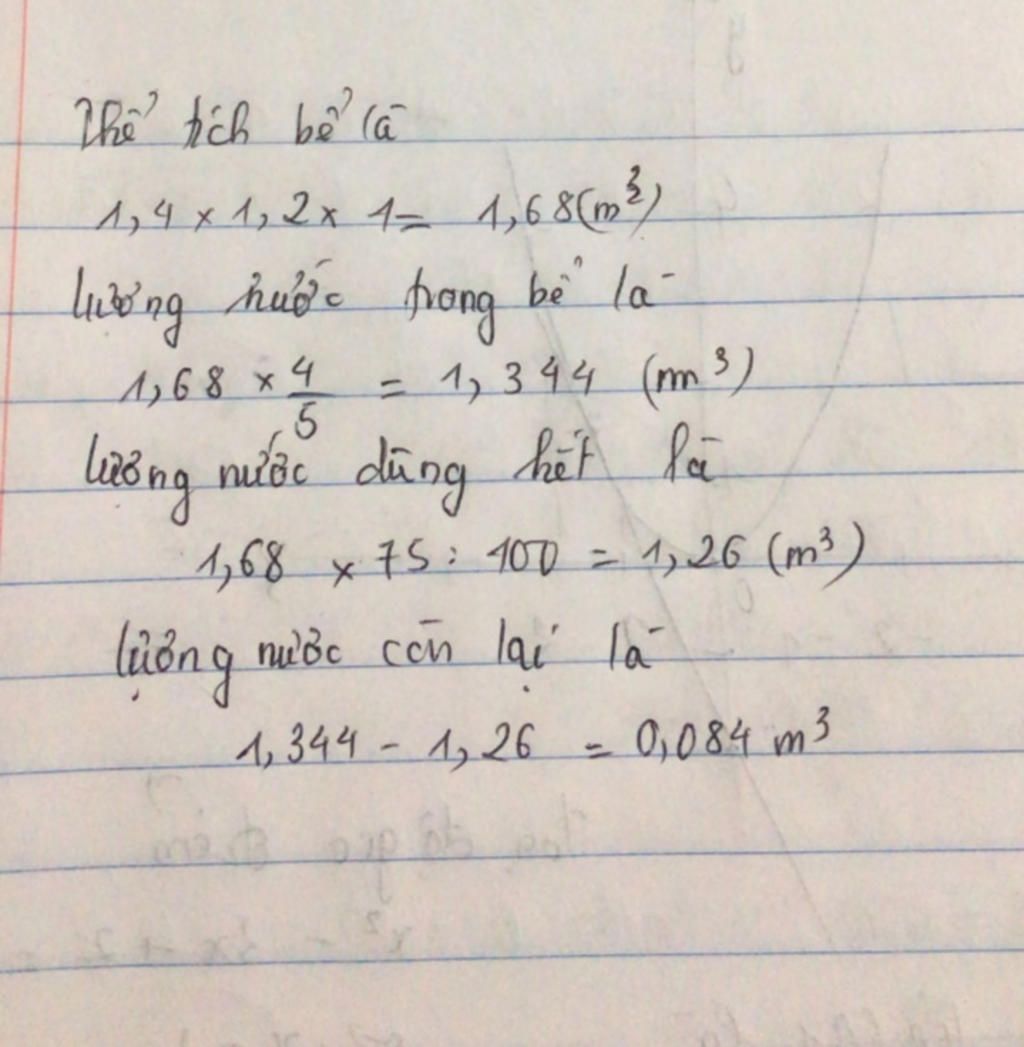 Thể tích bể là
1,4 x 1,2 x 1 = 1,68 (m³)
lượng nước trong bể là
1,68 x 4/5 = 1,344 (m³)
lượng nước dùng hết là
1,68 x 75 : 100 = 1,26 (m³)
lượng nước còn lại là
1,344 - 1,26 = 0,084 m³